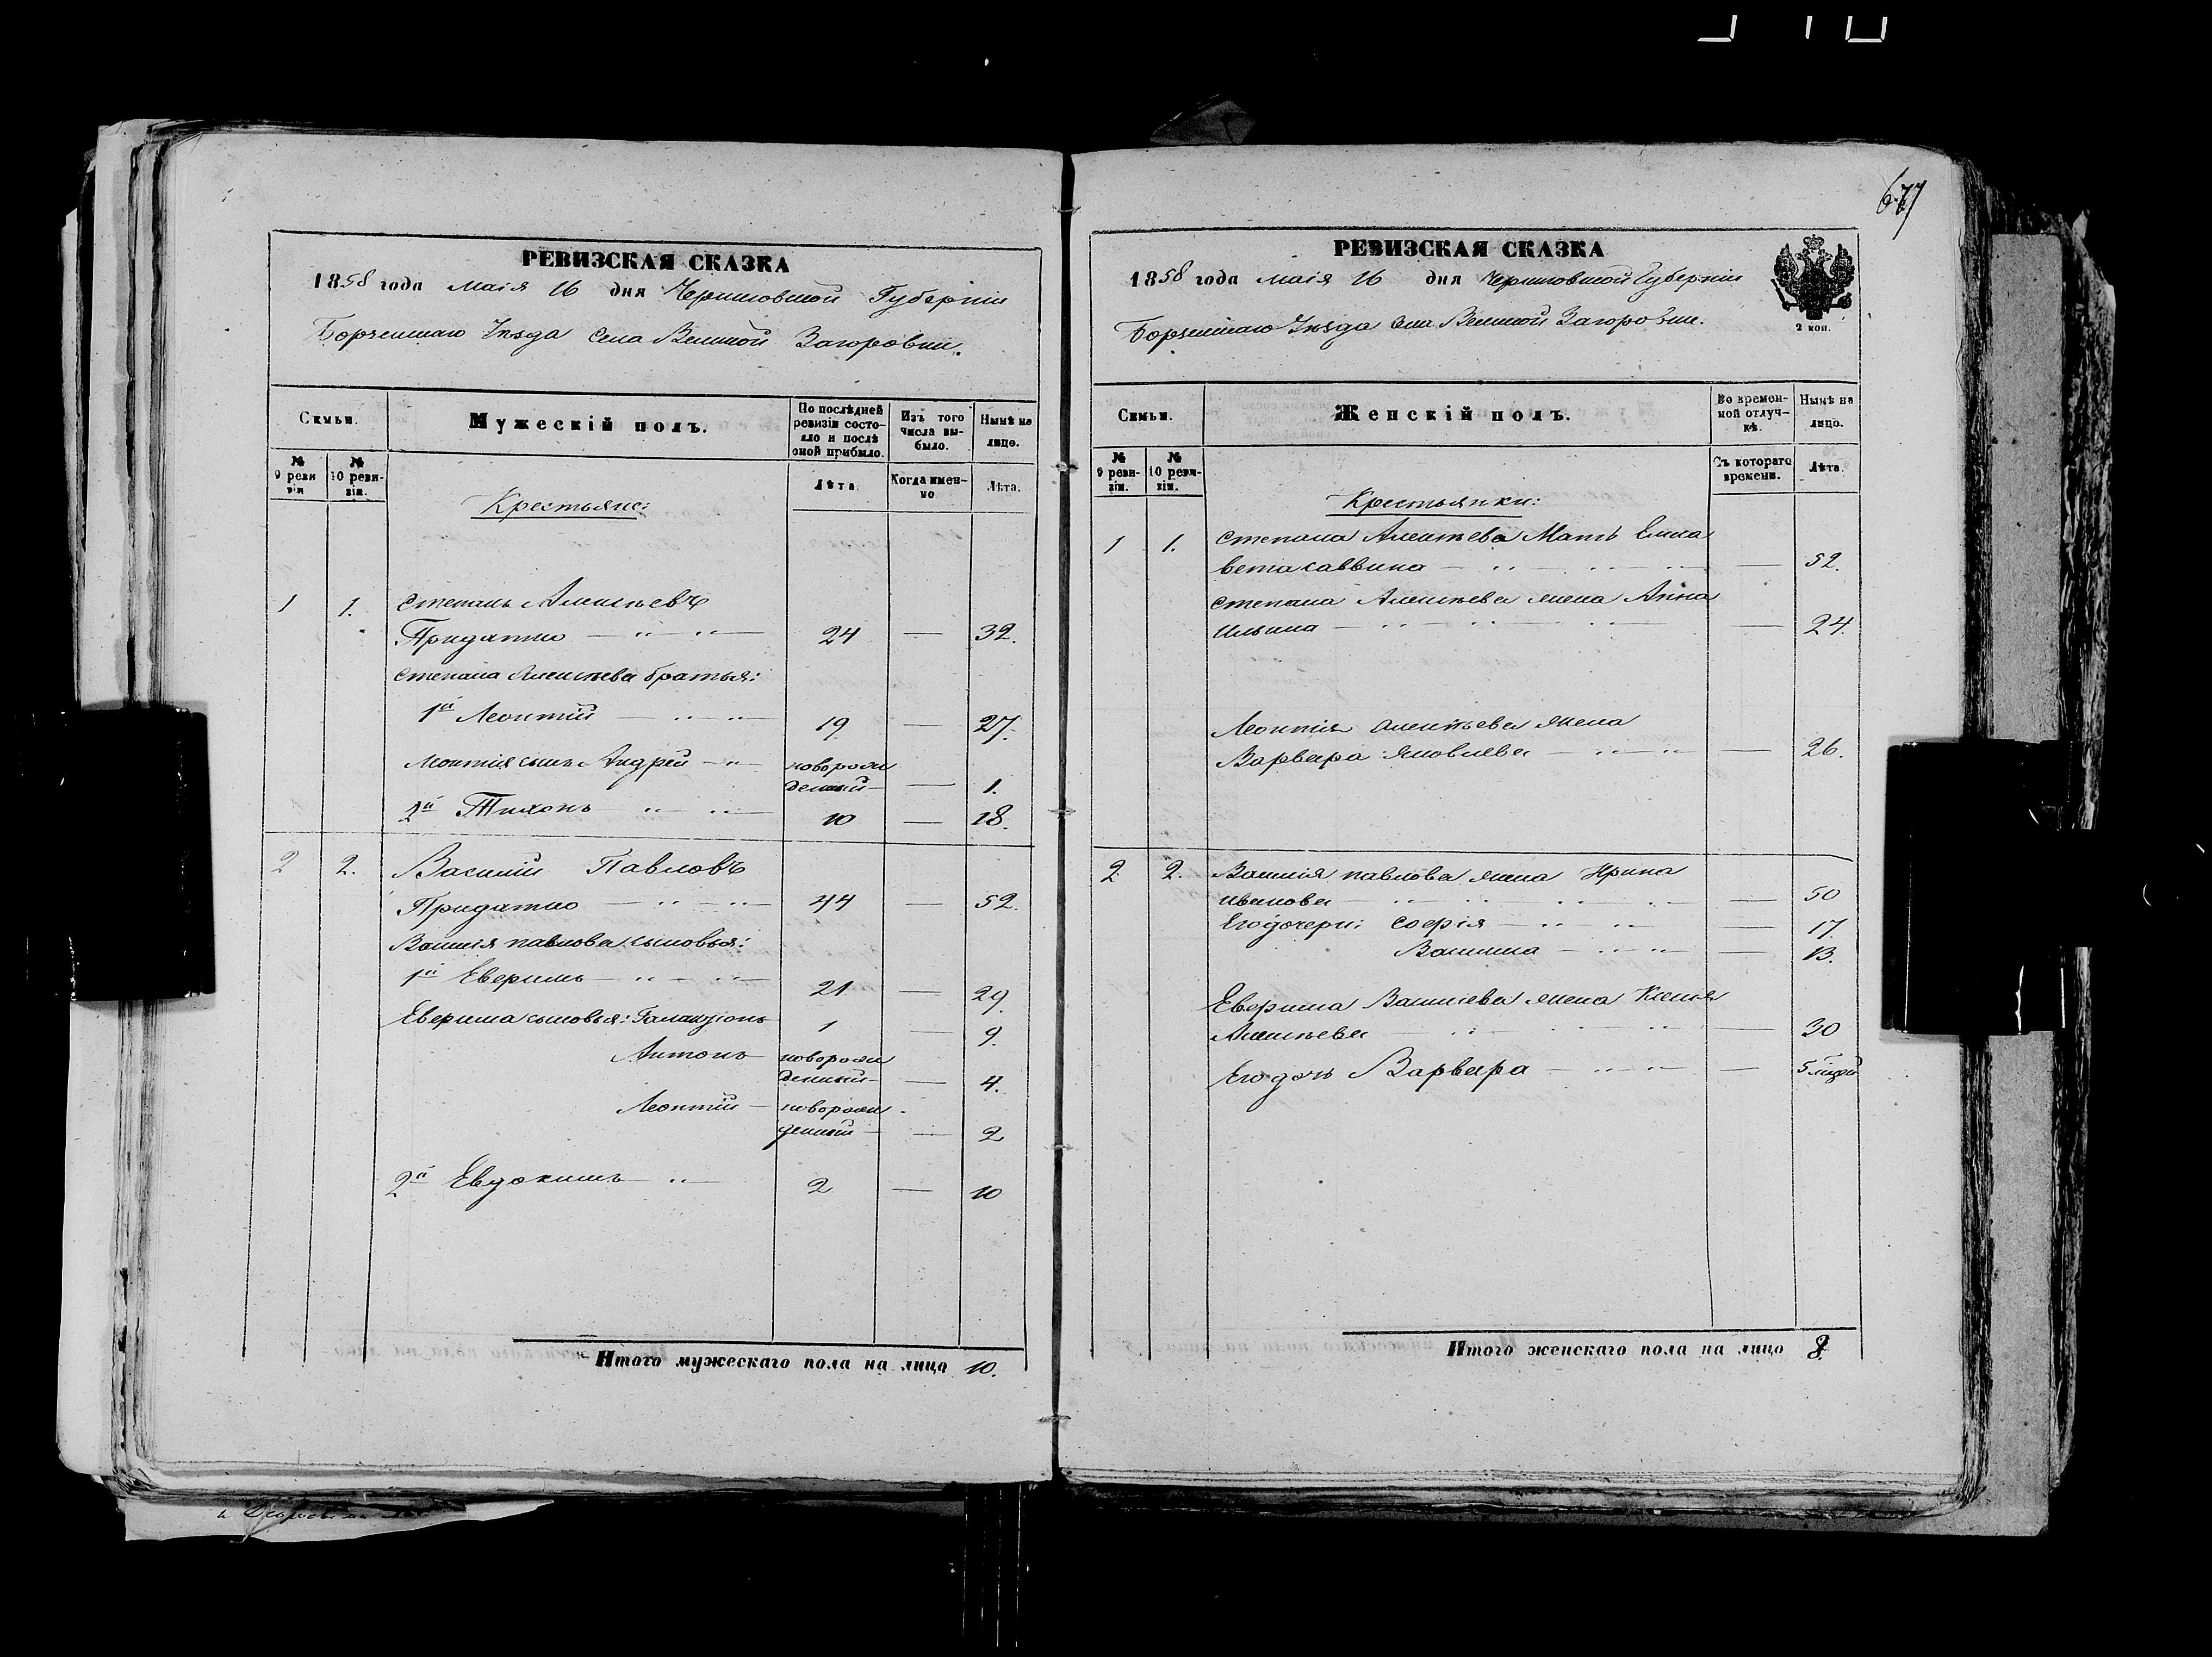 677
РЕВИЗСКАЯ СКАЗКА
1858 года маія 16 дня Черниговской Губерніи
Борзенскаго Уѣзда Села Великой Загоровки.
Семьи.
Мужескій полъ.
По послѣдней ревизіи состояло и послѣ оной прибыло.
Изъ того числа выбыло.
Нынѣ на лицо.
№ 9 ревизіи
№ 10 ревизіи.
Лѣта
Когда именно
Лѣта.
Крестьяне:
1 1. Степанъ Алексѣевъ
Придатко — " — " — 24 — 32.
Степана Алексѣева братья:
1й Леонтій — " — " — 19 — 27.
Леонтія сынъ Андрей — " — новорож
денный — — 1.
2й Тихонъ " — " — 10 — 18.
2 2. Василій Павловъ
Придатко — " — " — 44 — 52.
Василія Павлова сыновья:
1й Евфимъ — " — " — 21 — 29.
Евфима сыновья: Галактіонъ 1 9.
Антонъ новорож
денный — — 4.
Леонтій — новорож
денный — — 2
2й Евдокимъ — " — 2 — 10
Итого мужескаго пола на лицо 10.
РЕВИЗСКАЯ СКАЗКА
1858 года маія 16 дня Черниговской Губерніи
Борзенскаго Уѣзда Села Великой Загоровки.
2 коп.
Семьи.
Женскій полъ.
Во временной отлучкѣ.
Нынѣ на лицо.
№ 9 ревизіи.
№ 10 ревизіи.
Съ котораго времени.
Лѣта.
Крестьянки:
1 1. Степана Алексѣева Мать Елиса
вета Саввина — " — " — — 52.
Степана Алексѣева жена Анна
Ильина — " — " — " — — 24.
Леонтія Алексѣева жена
Варвара Яковлева — " — " — — 26.
2 2. Василія Павлова жена Ирина
Иванова — " — " — " — — 50
Его дочери: Софія — " — " — — 17.
Василиса — " — " — — 13.
Евфима Васильева жена Ксенія
Алексѣева " — " — " — — 30
Его дочь Варвара — " — " — — 5
Итого женскаго пола на лицо 8.